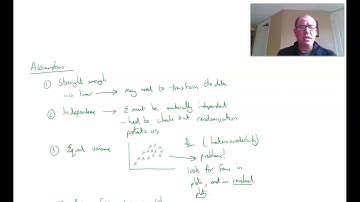 Assumptions
① Straight enough
- is linear → may need to transform the data
② Independence → ε must be mutually independent
- hard to check but randomization
protects us
③ Equal variance
fan (heteroscedasticity)
→ problem!
look for fans in
plots, and in residual
plots